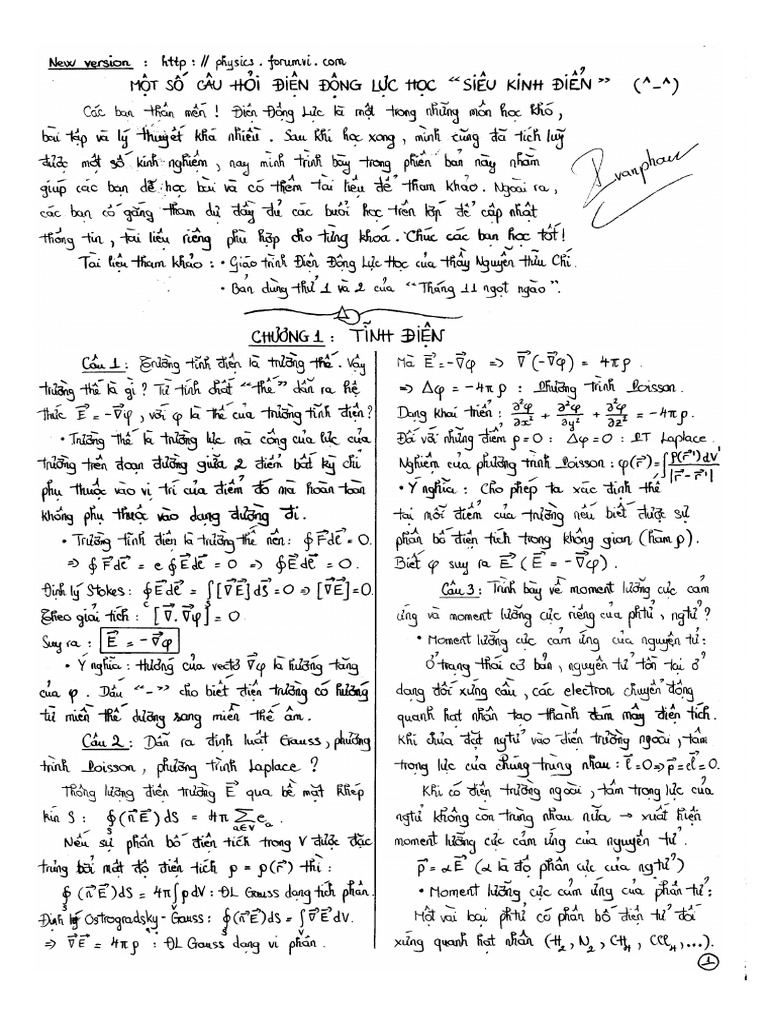 New version : http://physics.forumvi.com
MỘT SỐ CÂU HỎI ĐIỆN ĐỘNG LỰC HỌC "SIÊU KINH ĐIỂN" (^_^)
Các bạn thân mến! Điện Động Lực là một trong những môn học khó,
bài tập và lý thuyết khá nhiều. Sau khi học xong, mình cũng đã tích luỹ
được một số kinh nghiệm, nay mình trình bày trong phiên bản này nhằm
giúp các bạn dễ học bài và có thêm tài liệu để tham khảo. Ngoài ra,
các bạn cố gắng tham dự đầy đủ các buổi học trên lớp để cập nhật
thông tin, tài liệu riêng phù hợp cho từng khoá. Chúc các bạn học tốt!
vanphau
Tài liệu tham khảo : • Giáo trình Điện Động Lực Học của thầy Nguyễn Hữu Chí.
• Bản dùng thử 1 và 2 của "Tháng 11 ngọt ngào".
CHƯƠNG 1 : TĨNH ĐIỆN
Câu 1 : Trường tĩnh điện là trường thế. Vậy
trường thế là gì? Từ tính chất "thế" dẫn ra hệ
thức E⃗ = -∇⃗φ, với φ là thế của trường tĩnh điện?
• Trường thế là trường lực mà công của lực của
trường trên đoạn đường giữa 2 điểm bất kỳ chỉ
phụ thuộc vào vị trí của điểm đó mà hoàn toàn
không phụ thuộc vào dạng đường đi.
• Trường tĩnh điện là trường thế nên: ∮F⃗dℓ⃗ = 0.
⇒ ∮F⃗dℓ⃗ = e∮E⃗dℓ⃗ = 0 ⇒ ∮E⃗dℓ⃗ = 0.
Định lý Stokes : ∮_c E⃗dℓ⃗ = ∫_S [∇⃗E⃗]dS⃗ = 0 ⇒ [∇⃗E⃗] = 0.
Theo giải tích : [∇⃗.∇⃗φ] = 0
Suy ra : E⃗ = -∇⃗φ
• Ý nghĩa : hướng của vectơ ∇⃗φ là hướng tăng
của φ. Dấu "-" cho biết điện trường có hướng
từ miền thế dương sang miền thế âm.
Câu 2 : Dẫn ra định luật Gauss, phương
trình Poisson, phương trình Laplace ?
Thông lượng điện trường E⃗ qua bề mặt khép
kín S : ∮_S (n⃗E⃗)dS = 4π ∑_{a∈V} e_a
Nếu sự phân bố điện tích trong V được đặc
trưng bởi mật độ điện tích ρ = ρ(r⃗) thì :
∮_S (n⃗E⃗)dS = 4π∫_V ρdV : ĐL Gauss dạng tích phân.
Định lý Ostrogradsky-Gauss : ∮_S (n⃗E⃗)dS = ∫_V ∇⃗E⃗dV.
⇒ ∇⃗E⃗ = 4πρ : ĐL Gauss dạng vi phân.
Mà E⃗ = -∇⃗φ ⇒ ∇⃗(-∇⃗φ) = 4πρ
⇒ Δφ = -4πρ : Phương trình Poisson.
Dạng khai triển : ∂²φ/∂x² + ∂²φ/∂y² + ∂²φ/∂z² = -4πρ.
Đối với những điểm ρ=0 : Δφ=0 : PT Laplace.
Nghiệm của phương trình Poisson : φ(r⃗) = ∫ρ(r⃗')dV'/|r⃗-r⃗'|
• Ý nghĩa : Cho phép ta xác định thế
tại mỗi điểm của trường nếu biết được sự
phân bố điện tích trong không gian (hàm ρ).
Biết φ suy ra E⃗ (E⃗ = -∇⃗φ).
Câu 3 : Trình bày về moment lưỡng cực cảm
ứng và moment lưỡng cực riêng của phtử, ngtử?
• Moment lưỡng cực cảm ứng của nguyên tử:
Ở trạng thái cơ bản, nguyên tử tồn tại ở
dạng đối xứng cầu, các electron chuyển động
quanh hạt nhân tạo thành đám mây điện tích.
Khi chưa đặt ngtử vào điện trường ngoài, tâm
trọng lực của chúng trùng nhau : ℓ⃗=0⇒p⃗=eℓ⃗=0.
Khi có điện trường ngoài, tâm trọng lực của
ngtử không còn trùng nhau nữa → xuất hiện
moment lưỡng cực cảm ứng của nguyên tử.
p⃗ = αE⃗ (α là độ phân cực của ngtử)
• Moment lưỡng cực cảm ứng của phân tử:
Một vài loại phtử có phân bố điện tử đối
xứng quanh hạt nhân (H₂, N₂, CH₄, CCl₄,...).
1